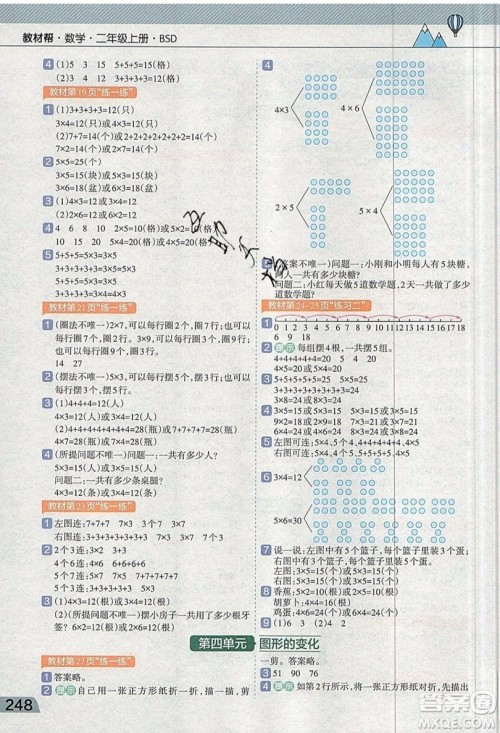 教材帮·数学·二年级上册·BSD
4 (1)5 3 15 5+5+5=15(格)
(2)3+3+3+3+3=15(格)
教材第19页“练一练”
1 (1)3+3+3+3=12(只)
3×4=12(只)或4×3=12(只)
(2)2+2+2+2+2+2+2=14(个)
2×7=14(个)或7×2=14(个)
2 5×5=25(个)
3 (1)3×5=15(块)或5×3=15(块)
(2)3×6=18(盆)或6×3=18(盆)
(3)4×3=12或3×4=12
4 4 7 6 8 2×5=10(格)或5×2=10(格)
10 15 20 4×5=20(格)或5×4=20(格)
5 5+5+5=5×3=3×5
3+3+3+3+3=3×5=5×3
教材第21页“练一练”
1 (圈法不唯一)2×7,可以每行圈2个,圈7行,也可以每行圈7个,圈2行。
14 27
2 (摆法不唯一)3×5,可以每行摆3个,摆5行,也可以每行摆5个,摆3行。
3 (1)4+4+4=12(人)
4×3=12(人)或3×4=12(人)
(2)4+4+4+4+4+4+4=28(瓶)
4×7=28(瓶)或7×4=28(瓶)
4 (所提问题不唯一)问题一:一共有多少人?
5×3=15(人)或3×5=15(人)
问题二:一共有多少条桌腿?
4×3=12(条)或3×4=12(条)
教材第23页“练一练”
1 左图连:7+7+7 7×3 3个7
右图连:3+3+3+3 4个3 4×3
2 2个3连:3+3 2×3 3×2
3个5连:5+5+5 3×5 5×3
5个2连:2+2+2+2+2 2×5 5×2
3 (1)4×2=8(人)或2×4=8(人)
(2)(所提问题不唯一)摆房子一共用了多少根牙签?
6×2=12(根)或2×6=12(根)
4
4×3
4×6
2×5
5×4
5 (答案不唯一)问题一:小刚和小明每人有5块糖,两人一共有多少块糖?
问题二:小红每天做5道数学题,2天一共做了多少道数学题?
教材第24~25页“练习二”
1 0 1 2 3 4 5 6 7 8 9 10 11 12 13 14 15 16 17 18
6 9 18
2 提示 每组摆4根,一共摆5组。
4+4+4+4+4=20(根)
3 5+5+5+5=25 3×5 5×3
4 3×5=15 5×3=15 4×6=24 6×4=24
5 左图可连:5×4,4+4+4+4+4,5个4,4×5
右图可连:4×3,3×4,3个4,4+4+4
6
3×4=12
5×6=30
7 说一说:左图中有5个篮子,每个篮子里有3个蛋;右图中有3个篮子,每个篮子里有5个蛋。
左图:3×5=15(个)或5×3=15(个)
右图:5×3=15(个)或3×5=15(个)
8 香蕉:5×2=10(根)或2×5=10(根)
胡萝卜:4×6=24(根)或6×4=24(根)
鸡蛋:4×3=12(个)或3×4=12(个)
9
第四单元 图形的变化
教材第27页“练一练”
1 答案略。
2 提示 自己用一张正方形纸折一折,描一描,剪一剪。答案略。
3 51 90 76
4 提示 如第2行所示,将一张正方形纸,先描出
248